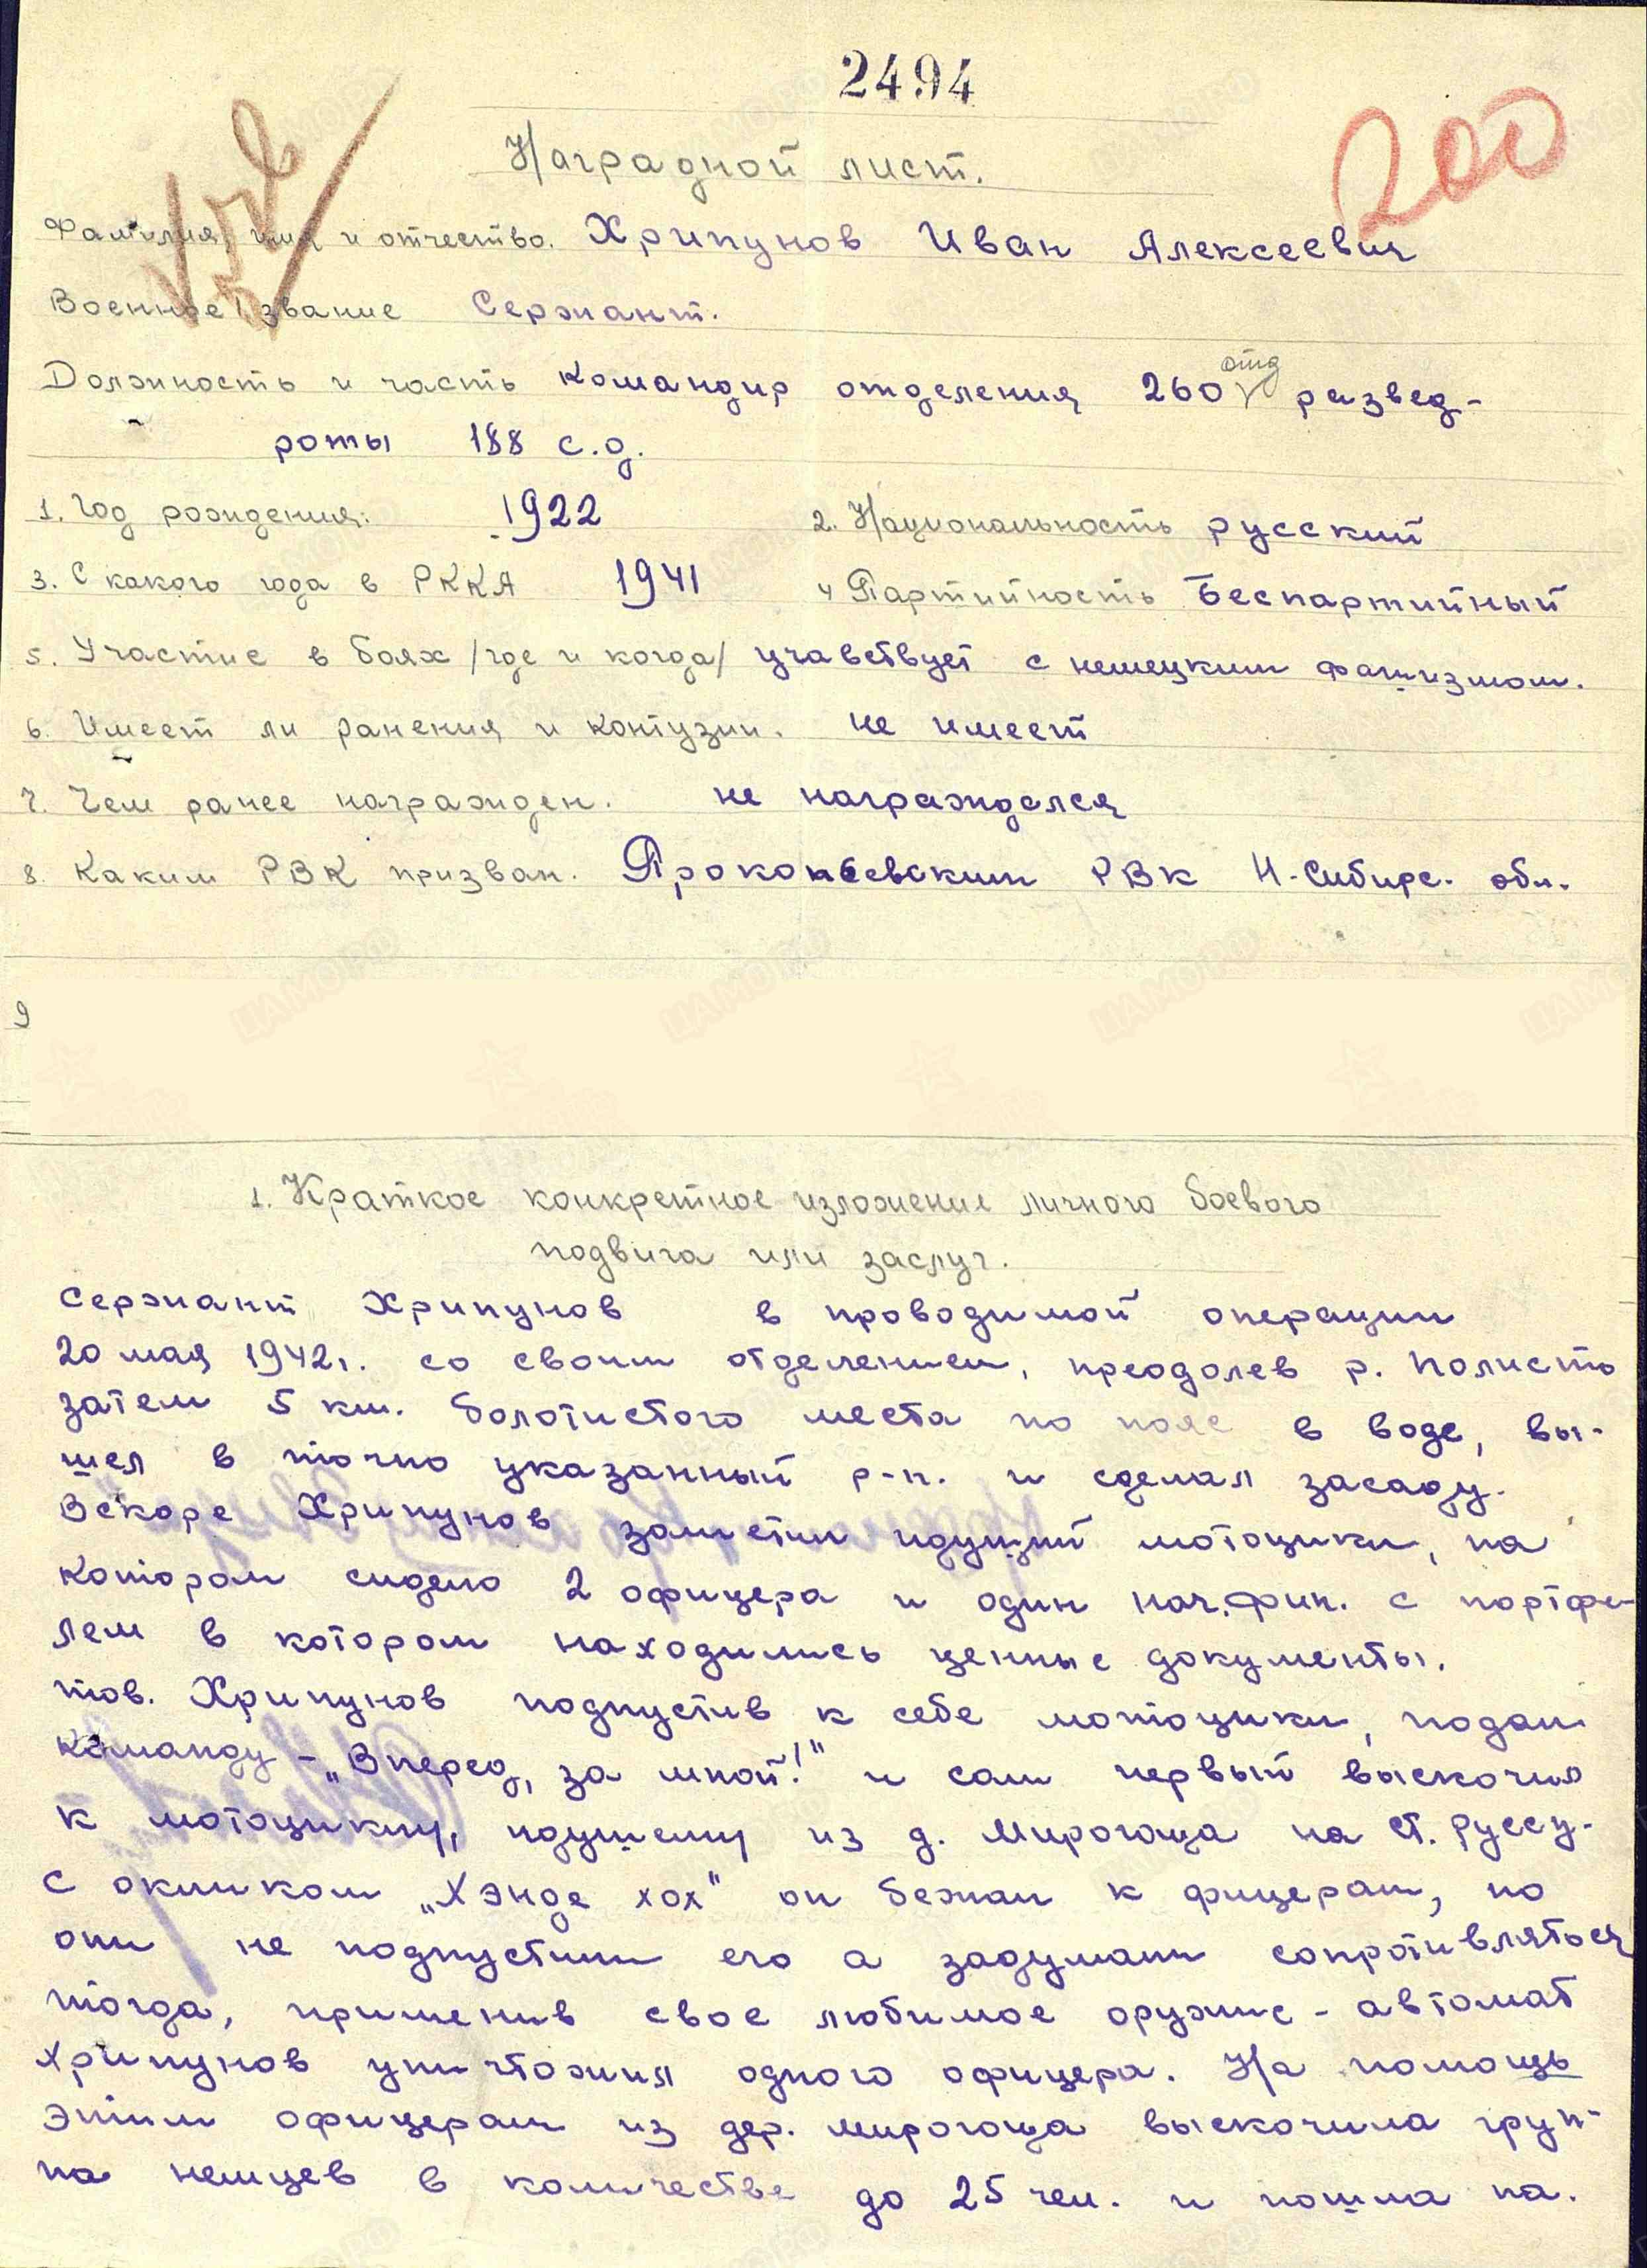 2494
200
Наградной лист.
Фамилия, имя и отчество. Хрипунов Иван Алексеевич
Военное звание Сержант.
Должность и часть командир отделения 260 отд развед-
роты 188 с.д.
1. Год рождения: 1922 2. Национальность русский
3. С какого года в РККА 1941 4 Партийность Беспартийный
5. Участие в боях /где и когда/ учавствует с немецким фашизмом.
6. Имеет ли ранения и контузии. не имеет
7. Чем ранее награжден. не награждался
8. Каким РВК призван. Прокопьевским РВК Н-Сибирс. обл.
9
1. Краткое конкретное изложение личного боевого
подвига или заслуг.
Сержант Хрипунов в проводимой операции
20 мая 1942г. со своим отделением, преодолев р. Полисть
затем 5 км. болотистого места по пояс в воде, вы-
шел в точно указанный р-н. и сделал засаду.
Вскоре Хрипунов заметил идущий мотоцикл, на
котором сидело 2 офицера и один нач.фин. с портфе-
лем в котором находились ценные документы.
тов. Хрипунов подпустив к себе мотоцикл, подал
команду - „Вперед, за мной!" и сам первый выскочил
к мотоциклу, идущему из д. Мирогоща на ст. Руссу.
С окликом „Хэнде хох" он бежал к фицерам, но
они не подпустили его а задумали сопротивляться
тогда, применив свое любимое оружие - автомат
Хрипунов уничтожил одного офицера. На помощь
этим офицерам из дер. Мирогоща выскочила груп-
па немцев в количестве до 25 чел. и пошла на.